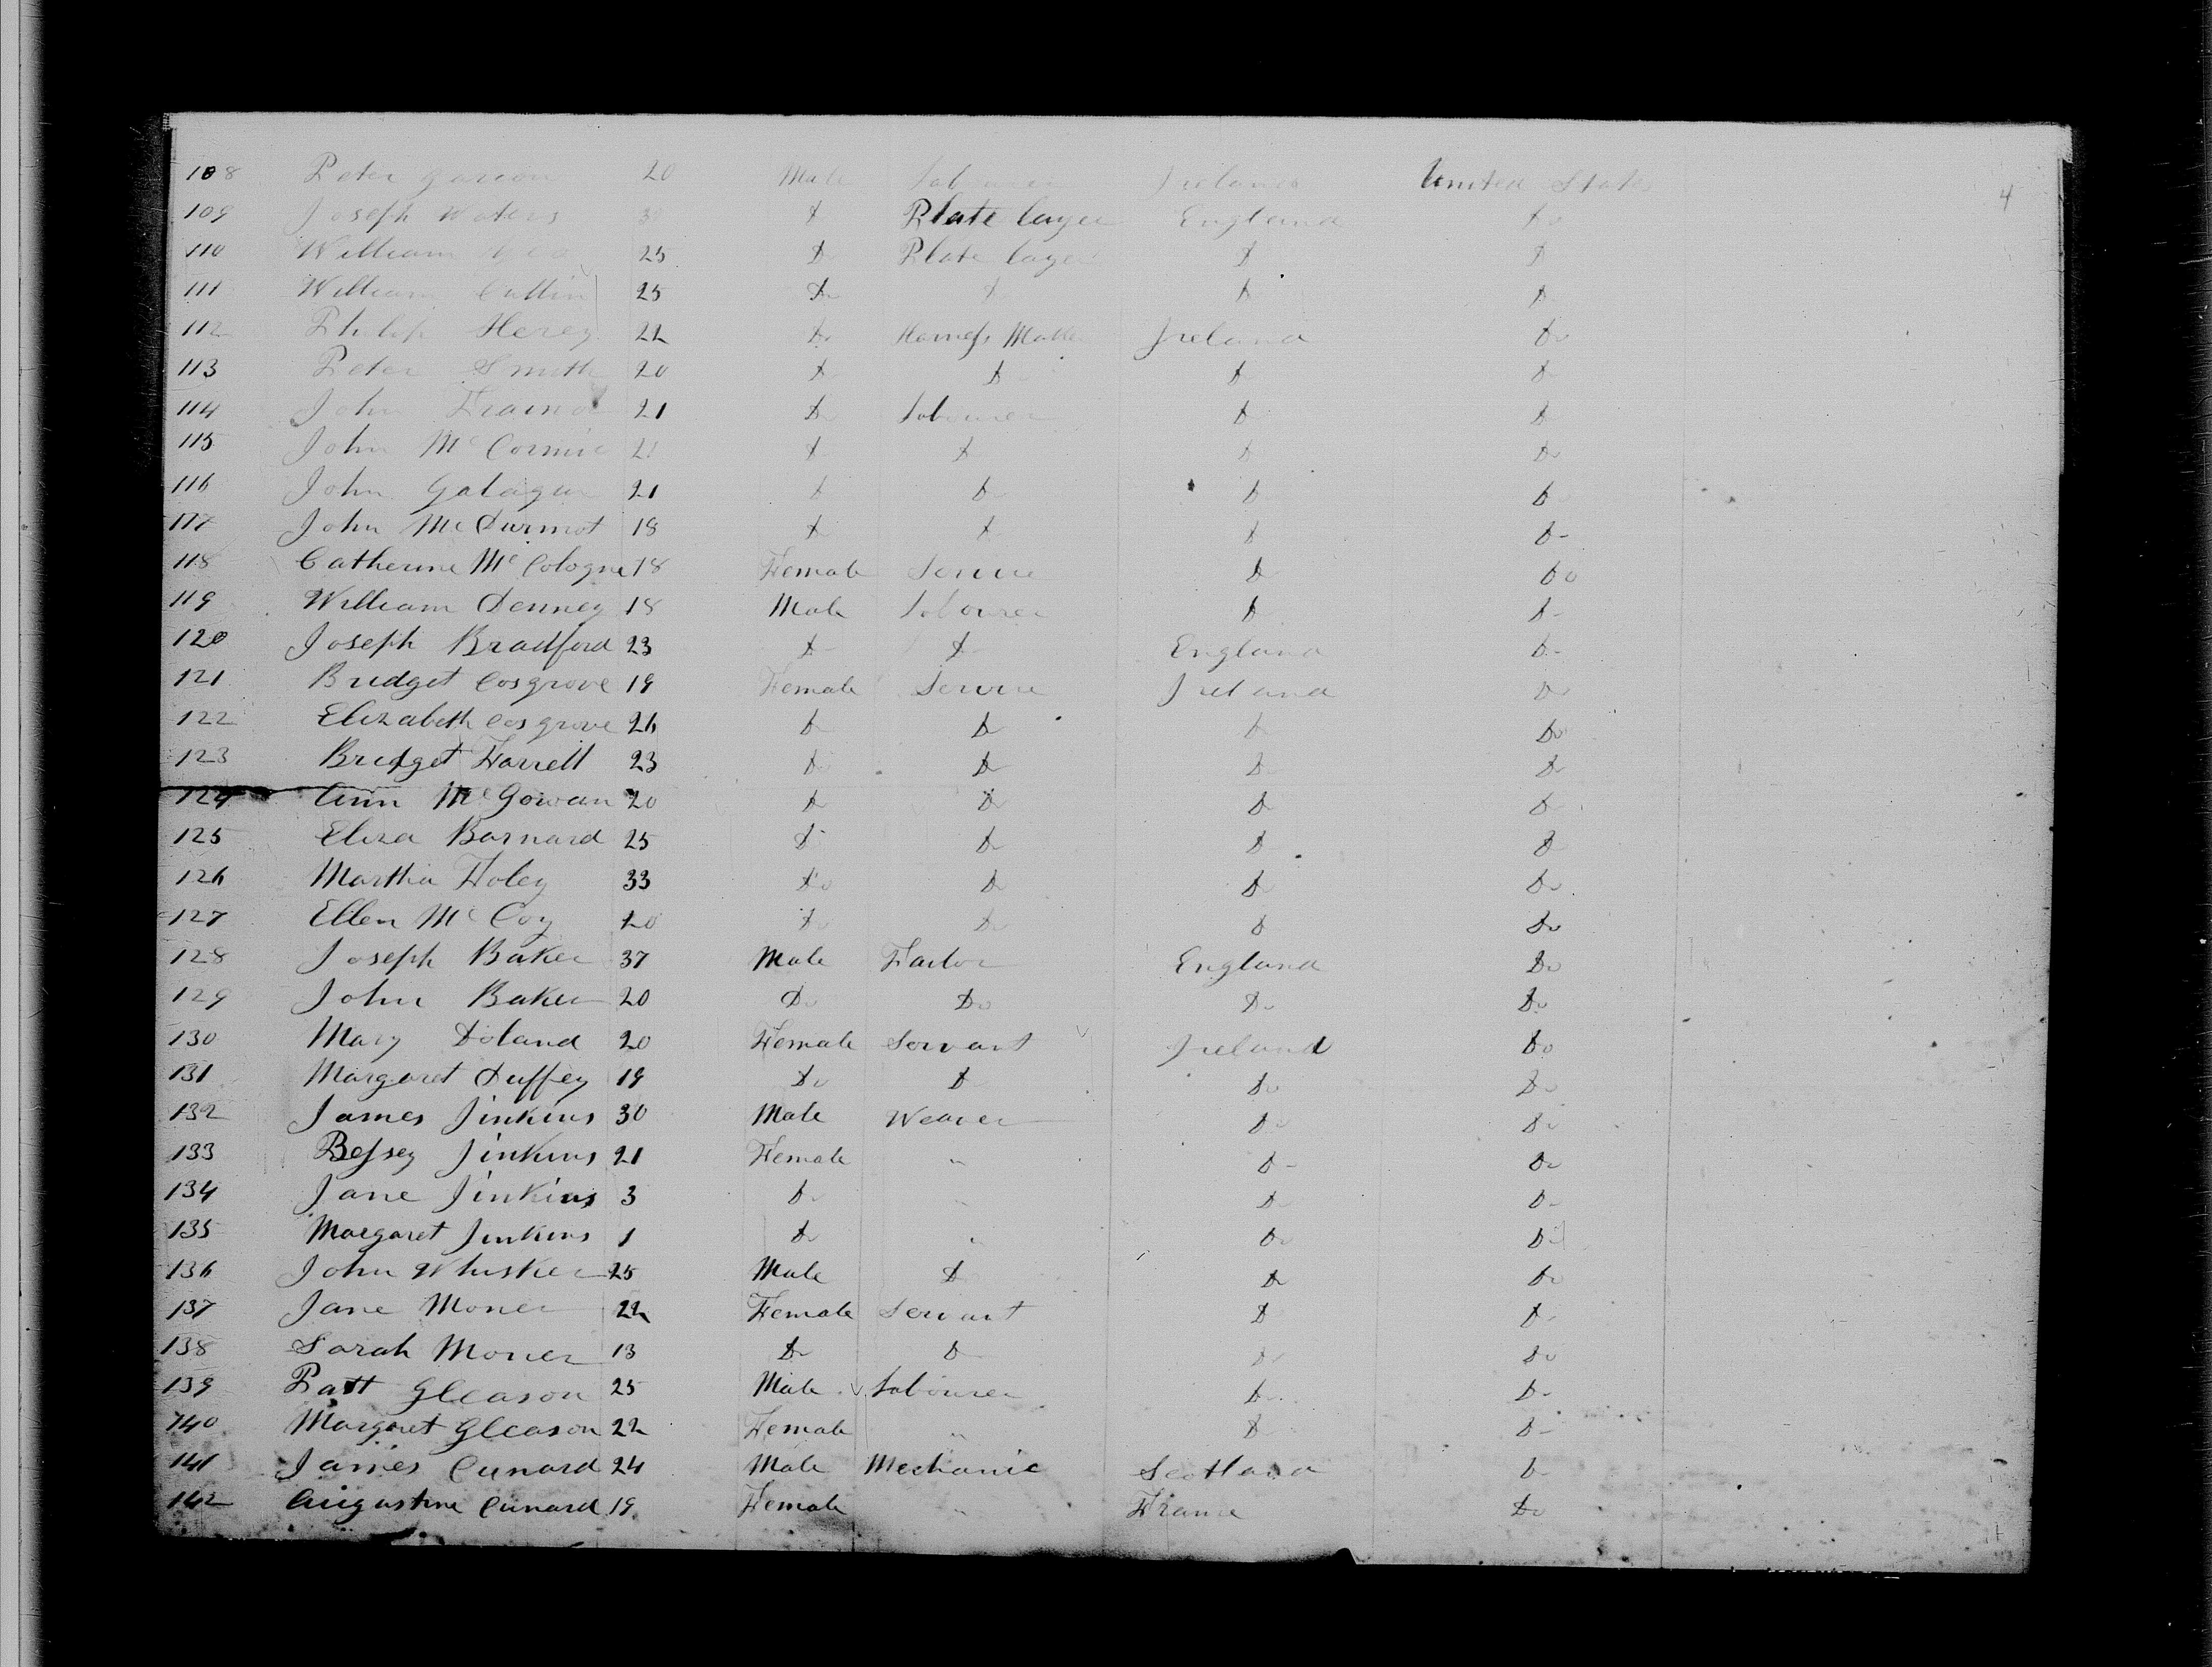 4
108 Peter 20 Male Labourer Ireland United States
109 Joseph Waters Do Plate layer England Do
110 William 25 Do Plate layer Do Do
111 William Cullin 25 Do Do Do Do
112 Philip Herey 22 Do Harness Maker Ireland Do
113 Peter Smith 20 Do Do Do Do
114 John 21 Do Labourer Do Do
115 John McCormic 21 Do Do Do Do
116 John Galagur 21 Do Do Do Do
117 John McDurmot 18 Do Do Do Do
118 Catherine McCologne 18 Female Do Do
119 William Denney 18 Male Labourer Do Do
120 Joseph Bradford 23 Do Do England Do
121 Bridget Cosgrove 19 Female Ireland Do
122 Elizabeth Cosgrove 26 Do Do Do Do
123 Bridget Farrell 23 Do Do Do Do
124 Ann McGowan 20 Do Do Do Do
125 Eliza Barnard 25 Do Do Do Do
126 Martha Foley 33 Do Do Do Do
127 Ellen McCoy 20 Do Do Do Do
128 Joseph Baker 37 Male England Do
129 John Baker 20 Do Do Do Do
130 Mary Doland 20 Female Servant Ireland Do
131 Margaret Duffey 19 Do Do Do Do
132 James Jinkins 30 Male Weaver Do Do
133 Bessey Jinkins 21 Female " Do Do
134 Jane Jinkins 3 Do " Do Do
135 Margaret Jinkins 1 Do " Do Do
136 John Whisker 25 Male Do Do Do
137 Jane Moner 22 Female Servant Do Do
138 Sarah Moner 13 Do Do Do Do
139 Patt Gleason 25 Male Labourer Do Do
140 Margaret Gleason 22 Female " Do Do
141 James Cunard 24 Male Mechanic Scotland Do
142 Augustine Cunard 19 Female " France Do